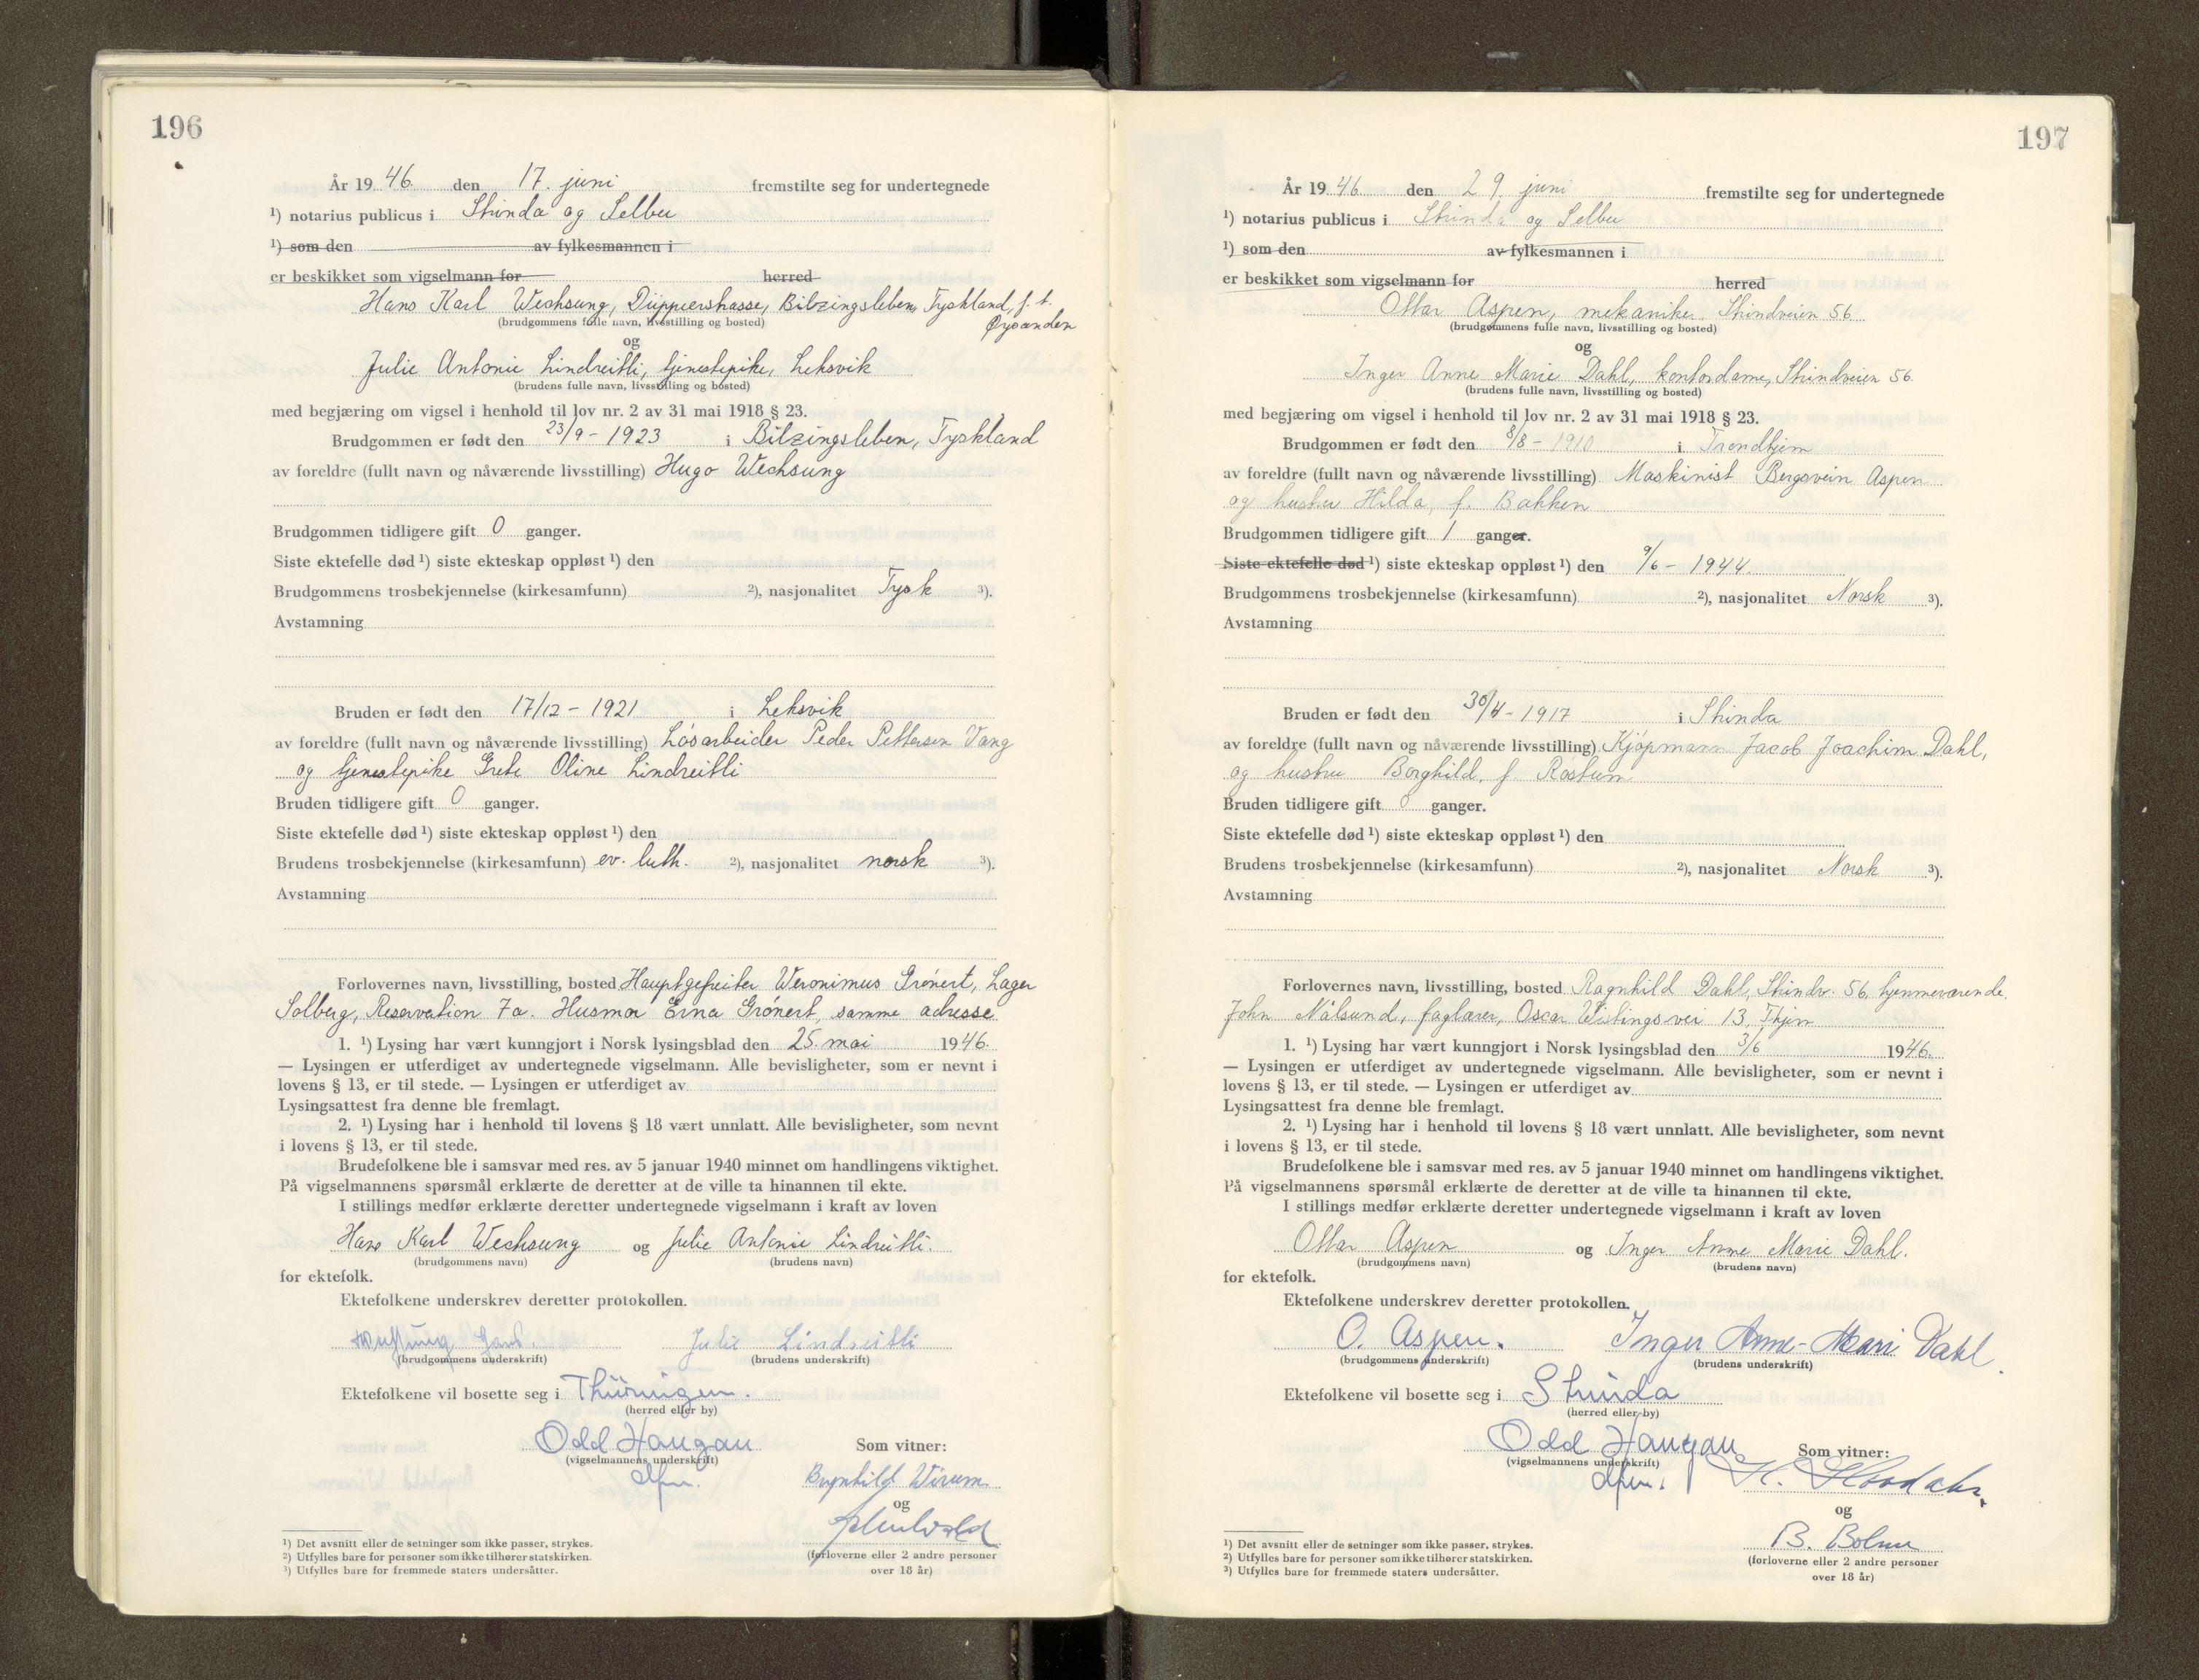 196
År 19 46. den 17. juni fremstilte seg for undertegnede
¹) notarius publicus i Strinda og Selbu
¹) som den av fylkesmannen i
er beskikket som vigselmann for herred
Hans Karl Wechsung, Düppierstrasse, Bilzingsleben, Tyskland, f. t.
Øysanden
(brudgommens fulle navn, livsstilling og bosted)
og
Julie Antonie Lindreitli, tjenestepike, Leksvik
(brudens fulle navn, livsstilling og bosted)
med begjæring om vigsel i henhold til lov nr. 2 av 31 mai 1918 § 23.
Brudgommen er født den 23/9 - 1923 i Bilzingsleben, Tyskland
av foreldre (fullt navn og nåværende livsstilling) Hugo Wechsung
Brudgommen tidligere gift 0 ganger.
Siste ektefelle død ¹) siste ekteskap oppløst ¹) den
Brudgommens trosbekjennelse (kirkesamfunn) ²), nasjonalitet Tysk ³).
Avstamning
Bruden er født den 17/12 - 1921 i Leksvik
av foreldre (fullt navn og nåværende livsstilling) Løsarbeider Peder Pettersen Vang
og tjenestepike Grete Oline Lindreitli
Bruden tidligere gift 0 ganger.
Siste ektefelle død ¹) siste ekteskap oppløst ¹) den
Brudens trosbekjennelse (kirkesamfunn) ev. luth. ²), nasjonalitet norsk ³).
Avstamning
Forlovernes navn, livsstilling, bosted Hauptgefreiter Weronimus Grönert, Lager
Solberg, Reservation 7a. Husmor Erna Grönert, samme adresse
1. ¹) Lysing har vært kunngjort i Norsk lysingsblad den 25. mai 1946.
— Lysingen er utferdiget av undertegnede vigselmann. Alle bevisligheter, som er nevnt i
lovens § 13, er til stede. — Lysingen er utferdiget av
Lysingsattest fra denne ble fremlagt.
2. ¹) Lysing har i henhold til lovens § 18 vært unnlatt. Alle bevisligheter, som nevnt
i lovens § 13, er til stede.
Brudefolkene ble i samsvar med res. av 5 januar 1940 minnet om handlingens viktighet.
På vigselmannens spørsmål erklærte de deretter at de ville ta hinannen til ekte.
I stillings medfør erklærte deretter undertegnede vigselmann i kraft av loven
Hans Karl Wechsung og Julie Antonie Lindreitli.
(brudgommens navn) (brudens navn)
for ektefolk.
Ektefolkene underskrev deretter protokollen.
Wechsung Hans. Julie Lindreitli
(brudgommens underskrift) (brudens underskrift)
Ektefolkene vil bosette seg i Thüringen.
(herred eller by)
Odd Haugan Som vitner:
(vigselmannens underskrift)
dfm. Brynhild Wirum
og
(forloverne eller 2 andre personer
over 18 år)
¹) Det avsnitt eller de setninger som ikke passer, strykes.
²) Utfylles bare for personer som ikke tilhører statskirken.
³) Utfylles bare for fremmede staters undersåtter.
197
År 19 46. den 29. juni fremstilte seg for undertegnede
¹) notarius publicus i Strinda og Selbu
¹) som den av fylkesmannen i
er beskikket som vigselmann for herred
Ottar Aspen, mekaniker Strindveien 56.
(brudgommens fulle navn, livsstilling og bosted)
og
Inger Anne Marie Dahl, kontordame, Strindveien 56.
(brudens fulle navn, livsstilling og bosted)
med begjæring om vigsel i henhold til lov nr. 2 av 31 mai 1918 § 23.
Brudgommen er født den 8/8 - 1910 i Trondhjem
av foreldre (fullt navn og nåværende livsstilling) Maskinist Bergsvein Aspen
og hustru Hilda, f. Bakken
Brudgommen tidligere gift 1 ganger.
Siste ektefelle død ¹) siste ekteskap oppløst ¹) den 9/6 - 1944.
Brudgommens trosbekjennelse (kirkesamfunn) ²), nasjonalitet Norsk ³).
Avstamning
Bruden er født den 30/4 - 1917 i Strinda
av foreldre (fullt navn og nåværende livsstilling) Kjøpmann Jacob Joachim Dahl,
og hustru Borghild, f. Røstum
Bruden tidligere gift 0 ganger.
Siste ektefelle død ¹) siste ekteskap oppløst ¹) den
Brudens trosbekjennelse (kirkesamfunn) ²), nasjonalitet Norsk ³).
Avstamning
Forlovernes navn, livsstilling, bosted Ragnhild Dahl, Strindv. 56, hjemmeværende.
John Målsund, faglærer, Oscar Wistings vei 13, Thjm
1. ¹) Lysing har vært kunngjort i Norsk lysingsblad den 3/6 1946.
— Lysingen er utferdiget av undertegnede vigselmann. Alle bevisligheter, som er nevnt i
lovens § 13, er til stede. — Lysingen er utferdiget av
Lysingsattest fra denne ble fremlagt.
2. ¹) Lysing har i henhold til lovens § 18 vært unnlatt. Alle bevisligheter, som nevnt
i lovens § 13, er til stede.
Brudefolkene ble i samsvar med res. av 5 januar 1940 minnet om handlingens viktighet.
På vigselmannens spørsmål erklærte de deretter at de ville ta hinannen til ekte.
I stillings medfør erklærte deretter undertegnede vigselmann i kraft av loven
Ottar Aspen og Inger Anne Marie Dahl.
(brudgommens navn) (brudens navn)
for ektefolk.
Ektefolkene underskrev deretter protokollen.
O. Aspen. Inger Anne-Marie Dahl.
(brudgommens underskrift) (brudens underskrift)
Ektefolkene vil bosette seg i Strinda
(herred eller by)
Odd Haugan Som vitner:
(vigselmannens underskrift)
dfm.
og
B. Bolme
(forloverne eller 2 andre personer
over 18 år)
¹) Det avsnitt eller de setninger som ikke passer, strykes.
²) Utfylles bare for personer som ikke tilhører statskirken.
³) Utfylles bare for fremmede staters undersåtter.